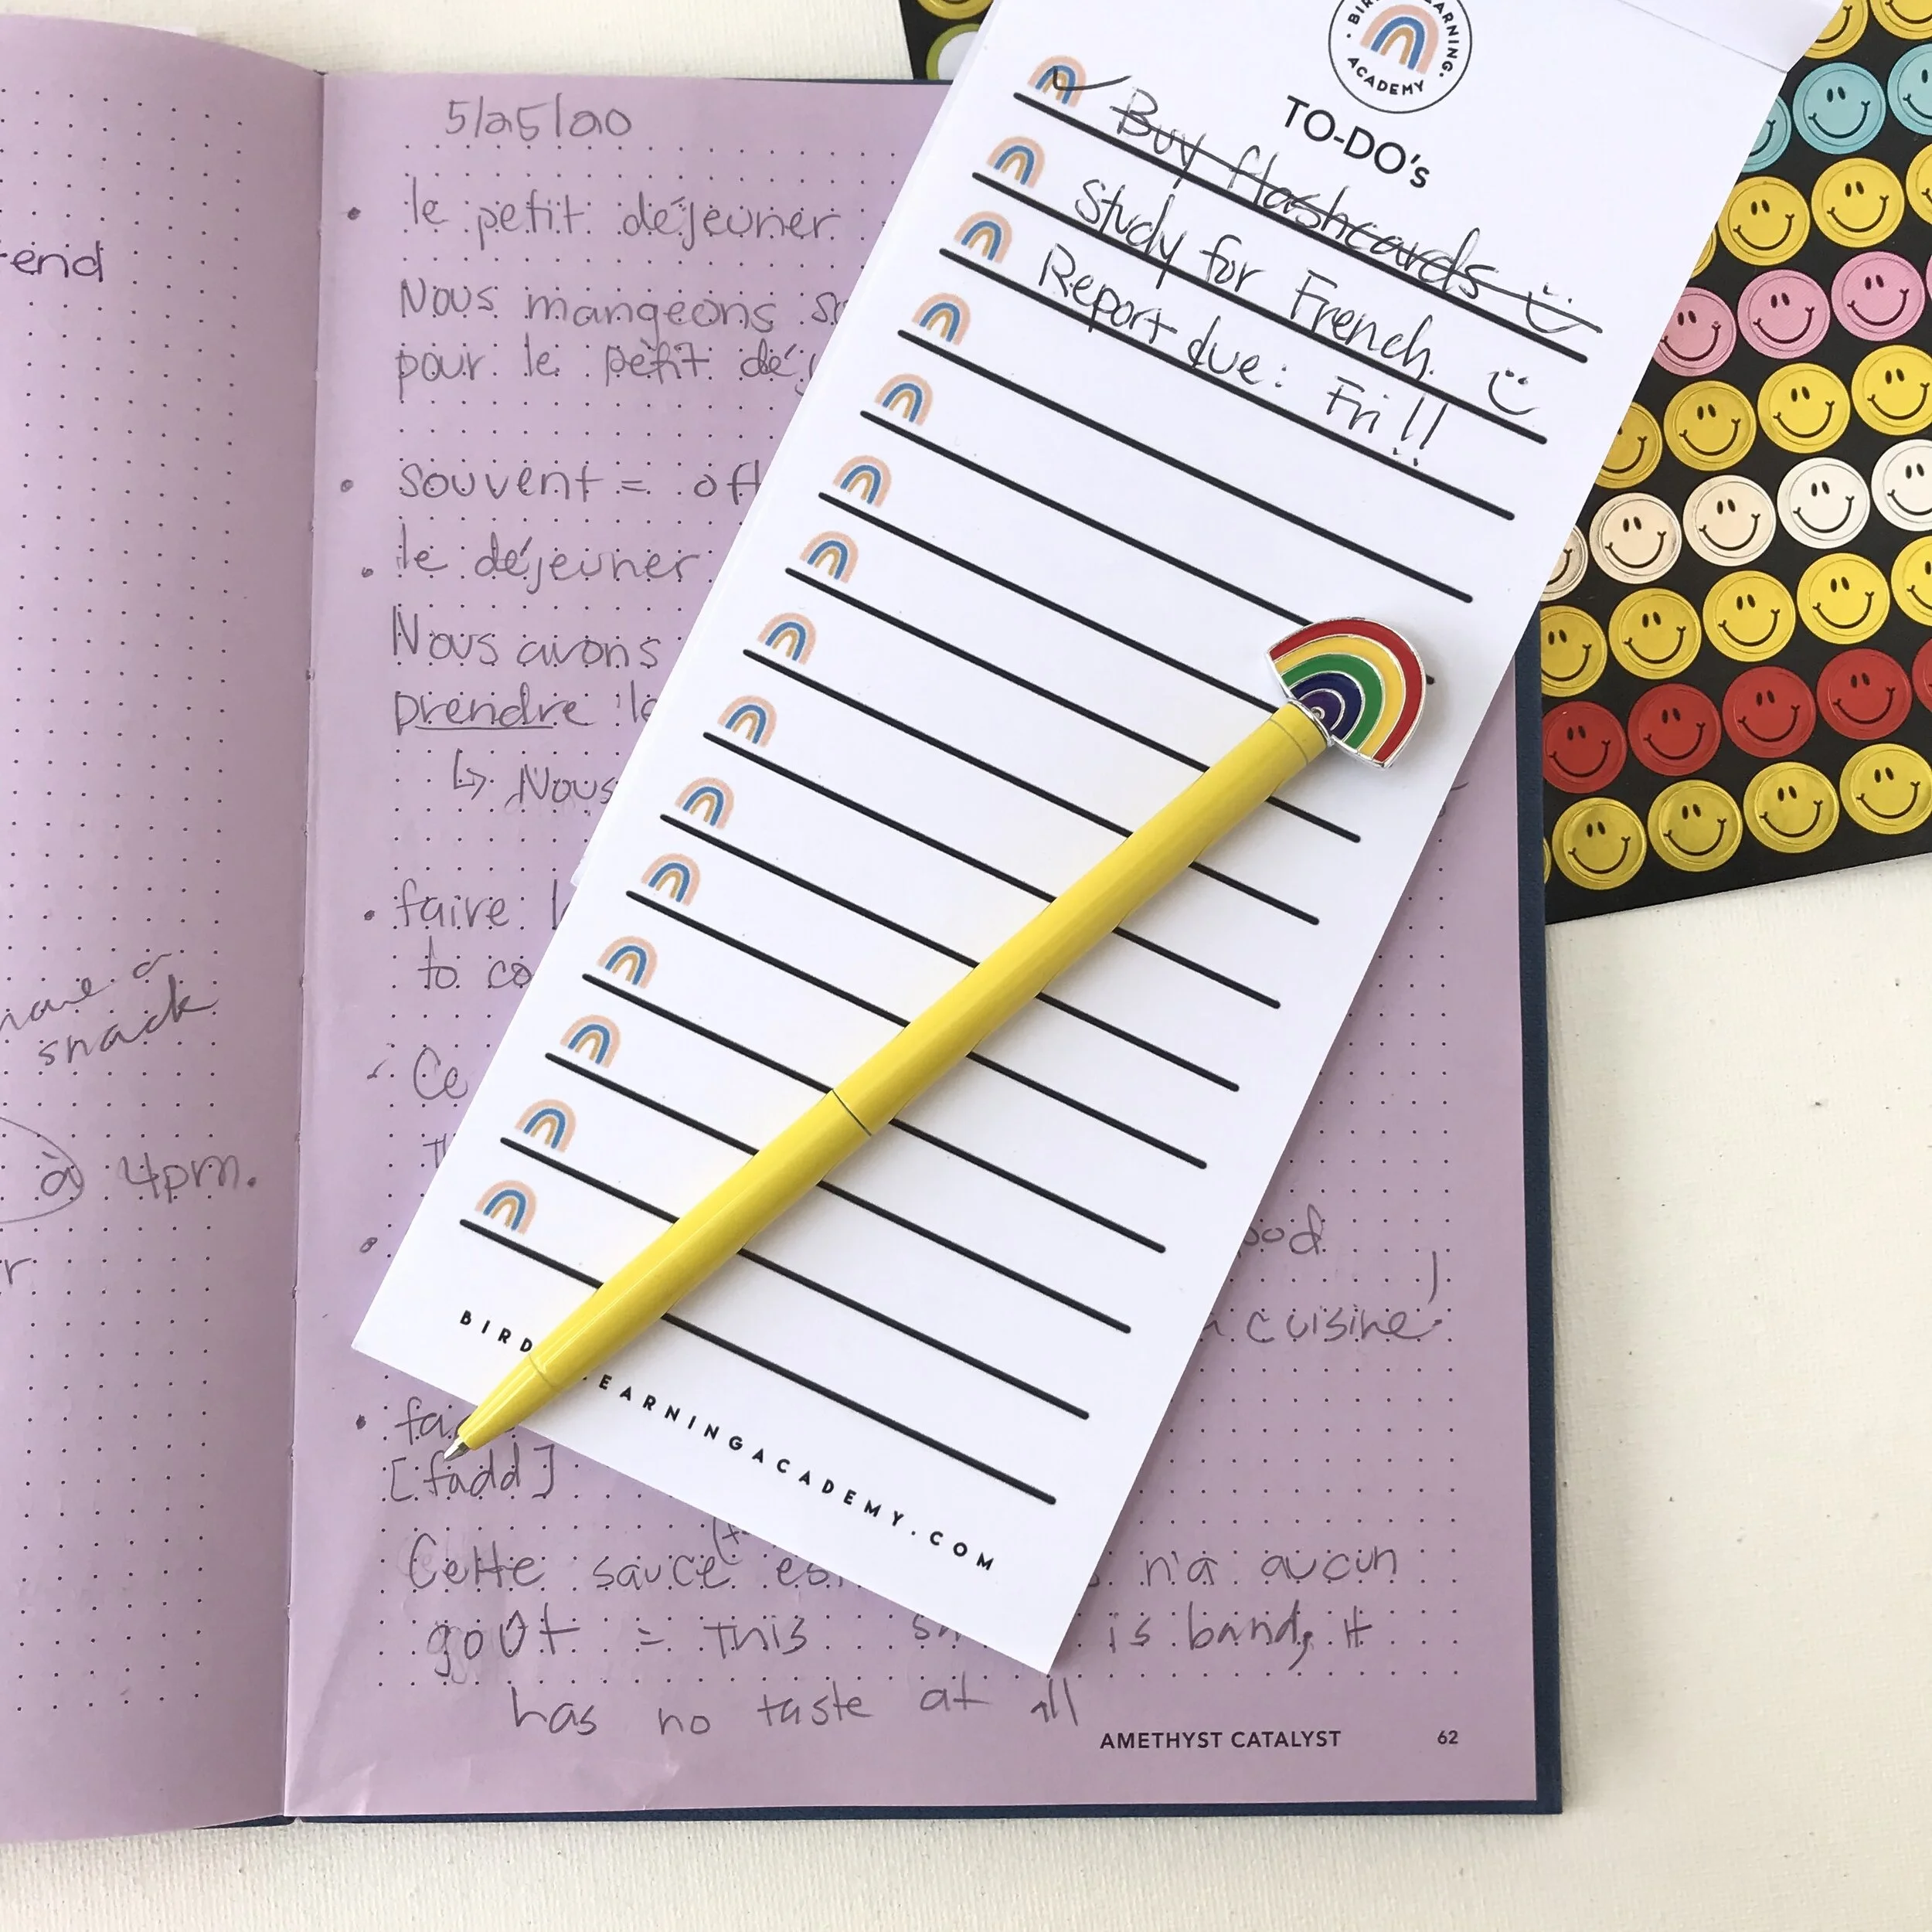 end
snack
à 4pm.
5/25/20
le petit déjeuner
Nous mangeons
pour le petit
souvent =
le déjeuner
Nous avons
prendre
↳ Nous
faire
to
Ce
cuisine
[fadd]
Cette sauce n'a aucun
goût = this is band, it
has no taste at all
AMETHYST CATALYST 62
ACADEMY
TO-DO's
Buy flashcards
Study for French.
Report due: Fri!!
BIRD EARNINGACADEMY.COM